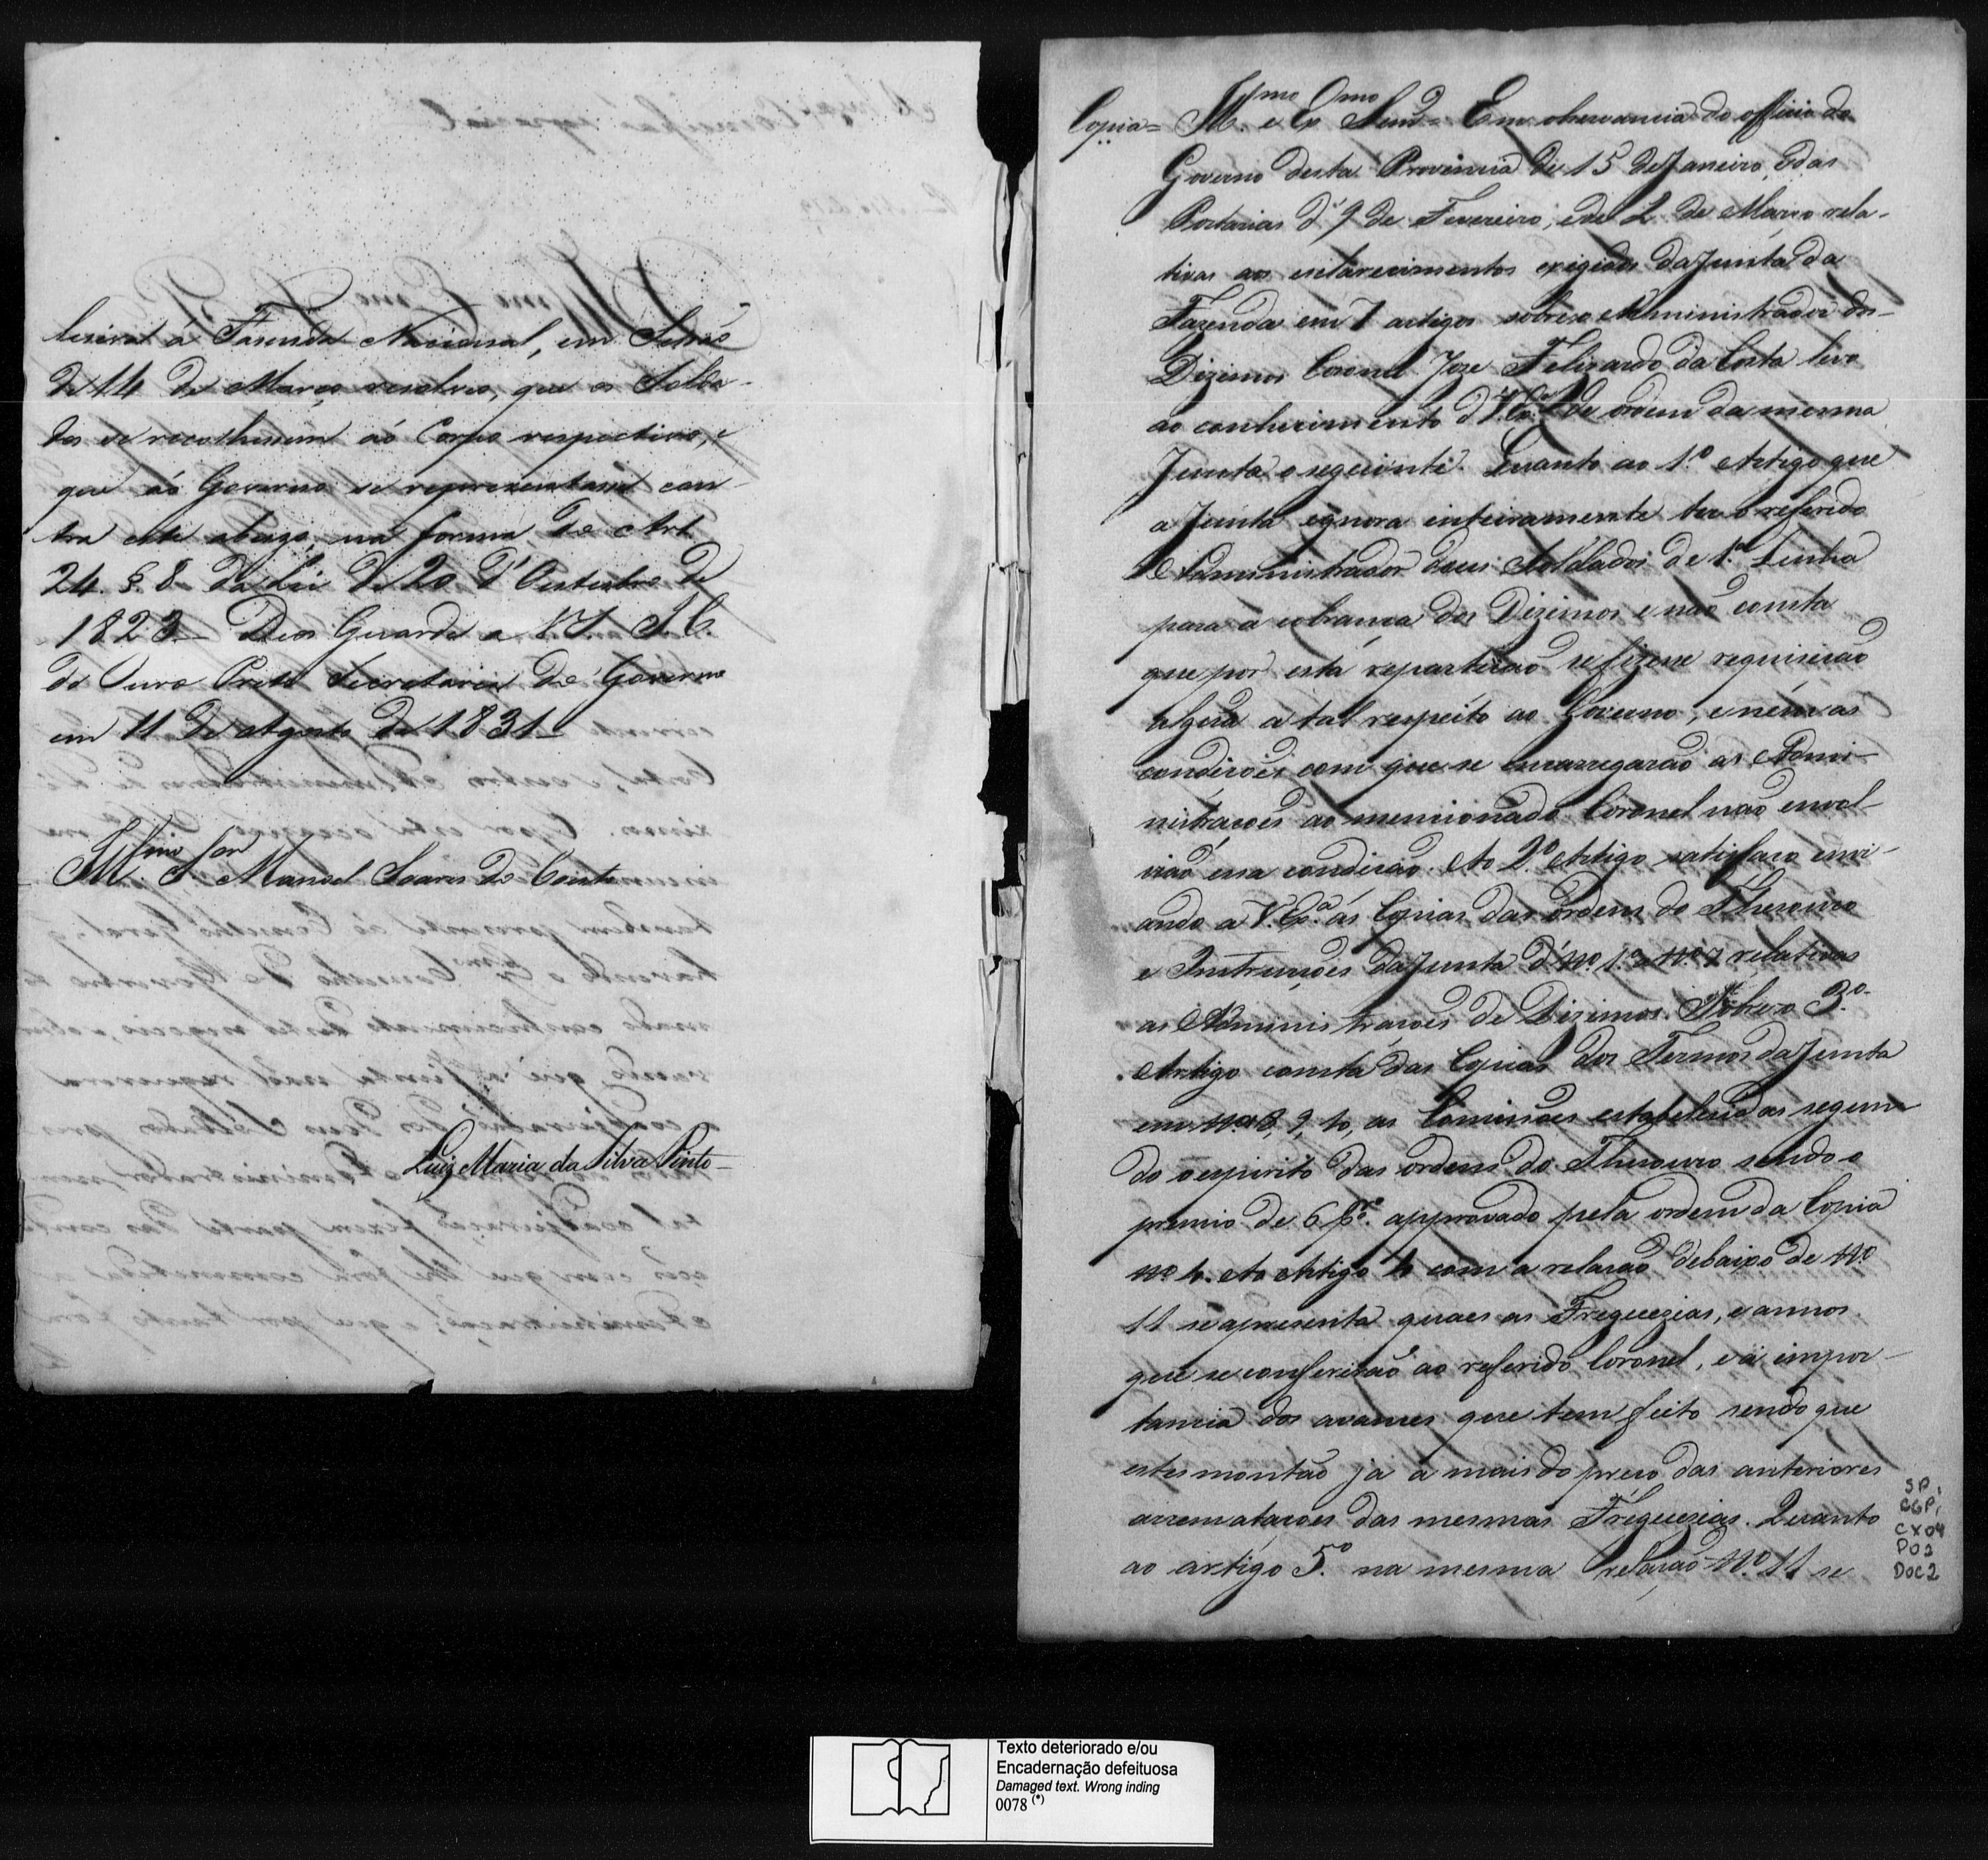 lesiva á Fasenda Nacional, em Sessaõ
de 14 de Março resolveo, que os Solda-
dos se recolhessem áo Corpo respectivo, e
que áo Governo se representasse con-
tra este abuzo, na forma do Art.
24. §. 8 da Lei de 20 d'Outubro de
1823 - Deos Guarde a V. S. I. C.
do Ouro Preto Secretaria do Governo
em 11 de Agosto de 1831 -
Ill.mo Snr Manoel Soares do Couto
Luiz Maria da Silva Pinto -
Copia = Ill.mo e Ex.mo Senr = Em observancia do officio do
Governo desta Provincia de 15 de Janeiro, e das
Portarias d' 9 de Fevereiro, e de 2 de Março rela-
tivas aos esclarecimentos exigidos da Junta da
Fazenda em 7 artigos sobre o Administrador dos
Dizimos Coronel Joze Felizardo da Costa levo
ao conhecimento d'V. Ex.ª de ordem da mesma
Junta o seguinte. Quanto ao 1.º Artigo que
a Junta ignora inteiramente ter o referido
Administrador deus Soldados de 1.ª Linha
para a cobrança dos Dizimos e não consta
que por esta repartição se fizesse requisição
algũa a tal respeito ao Governo, e nem as
condições com que se encarregarão as Admi-
nistrações ao mencionado Coronel não envol-
vião essa condição. Ao 2.º Artigo satisfaço envi-
ando a V. Ex.ª as Copias das Ordens do Thesouro
e Instruções da Junta d'N.º 1.º a N.º 7 relativas
as Administrações de Dizimos. Sobre o 3.º
Artigo consta das Copias dos Termos da Junta
em N.os 8, 9, 10, as Comissões estabelecidas segun-
do o espirito das ordens do Thesouro sendo o
premio de 6 p.c. approvado pela ordem da Copia
N.º 4. Ao Artigo 4 com a relação debaixo de N.º
11 se apresenta quaes as Freguezias, e annos
que se conferirão ao referido Coronel, e a impor-
tancia dos avances que tem feito sendo que
estes montão já a mais do preço das anteriores
arrematações das mesmas Freguezias. Quanto
ao artigo 5.º na mesma relação N.º 11 se
SP,
CGP,
CX04
D02
DOC2
Texto deteriorado e/ou
Encadernação defeituosa
Damaged text. Wrong inding
0078 (*)